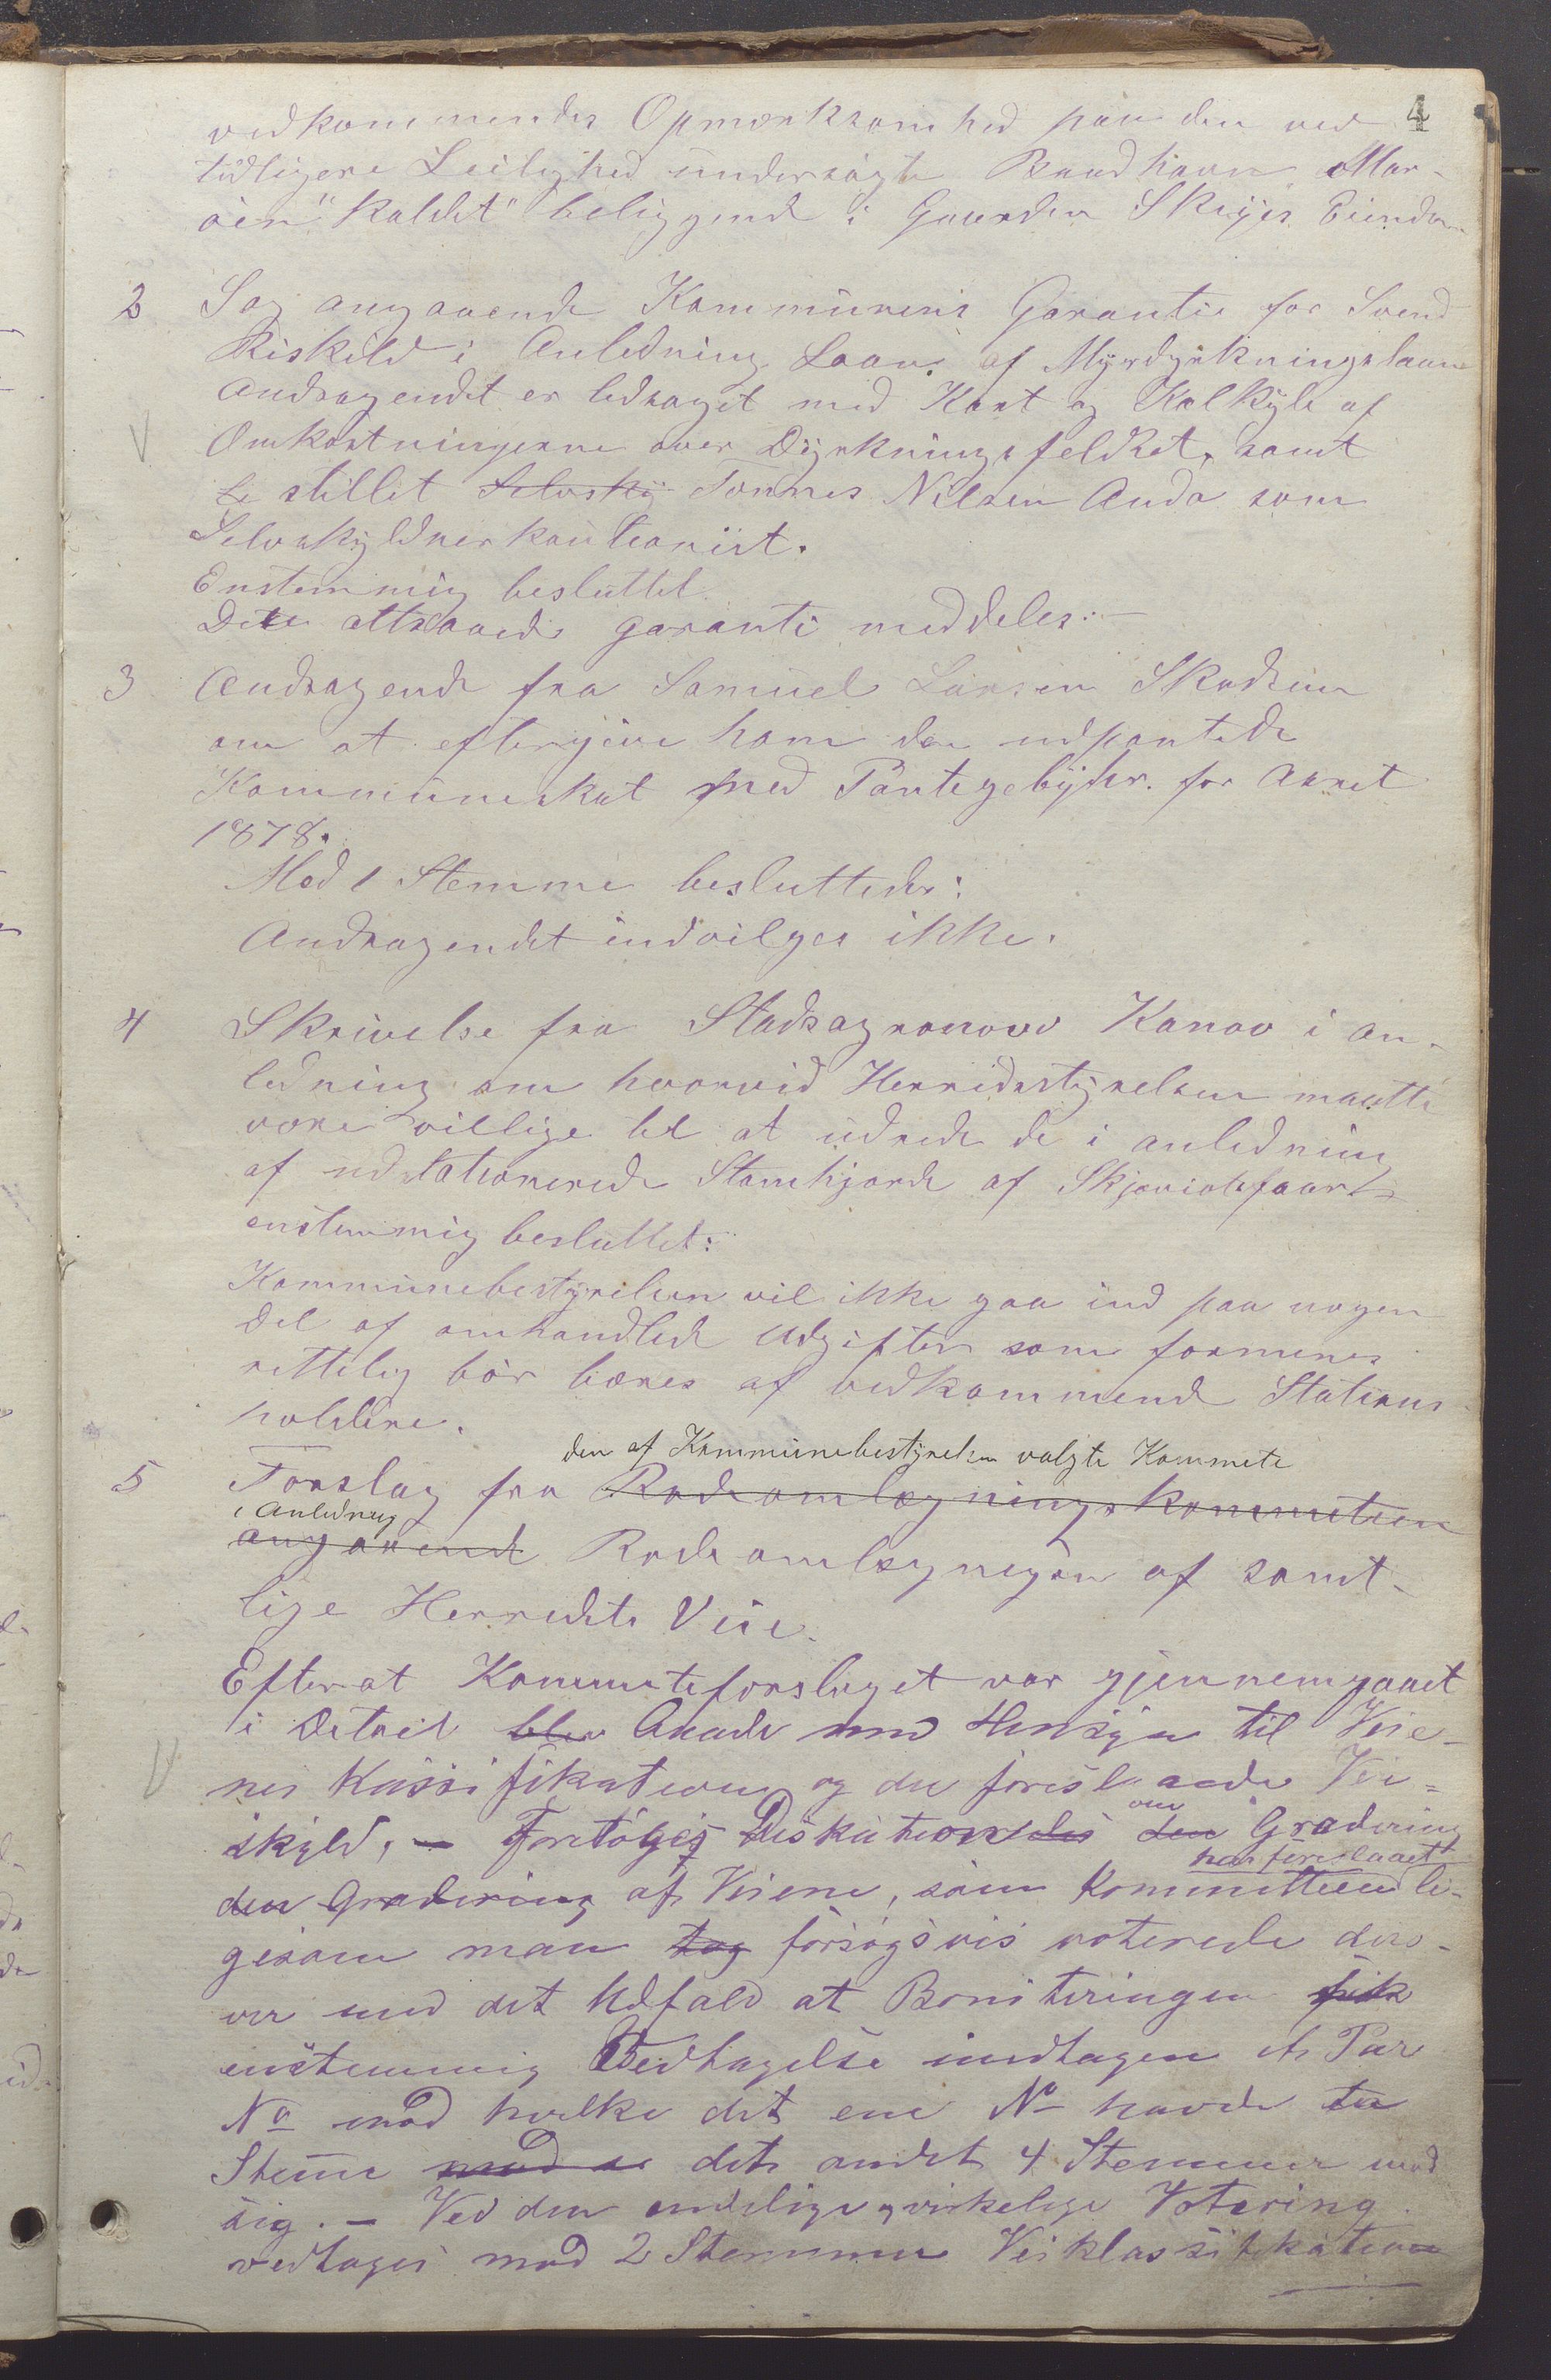 4
vedkommendes Opmærksomhed paa den ved
tidligere Leilighed undersøgte Baadhavn "Mar-
øien" kaldet" beliggende i Gaarden Skeijes Eiendom
2 Sag angaaende Kommunens Garanti for Svend
Riskild i Anledning Laan af Myrdyrkningslaane
Andragendet er ledsaget med Kart og Kalkyle af
Omkostningerne over Dyrkningsfeldtet, samt
stillet Selvsky Tønnes Nilsen Anda som
Selvskyldnerkautionist.
Enstemmig besluttet.
Den attraaede garanti meddeles:
3 Andragende fra Samuel Larsen Skadsem
om at eftergive ham den udpantede
Kommuneskat med Pantegebyhr. for Aaret
1878.
Mod 1 Stemme besluttedes:
Andragendet indvilges ikke.
4 Skrivelse fra Stadsagronom Kanov i an-
ledning om hvorvid Herredsstyrelsen maatte
være villige til at udrede de i anledning
af udstationerede Stamhjorde af Skjeviotsfaar
enstemmig besluttet:
Kommunebestyrelsen vil ikke gaa ind paa nogen
del af omhandlede Udgifter som formenes
rettelig bør bæres af vedkommende Stations-
holdere.
den af Kommunebestyrelsen valgte Kommete
5 Forslag fra Rodeomlægningskommeteen
i Anledning
angaaende Rodeomlægningen af samt-
lige Herredets Veie.
Efterat Kommeteforslaget var gjennemgaaet
i Detail blev Anade med Hensyn til Veie-
nes Kassifikation og den foreslaaede Vei-
skyld, - Foretoges Diskution den om Gradering
har foreslaaet
den Gradering af Veiene, som Kommitteen li-
gesom man tog forsøgsvis voterede der-
over med det Udfald at Boniteringen fik
enstemmig Vedtagelse undtagen et Par
No mod hvilke det ene No havde en
Stemme mod det andet 4 Stemmer mod
sig. - Ved den endelige og virkelige Votering
vedtages mod 2 Stemmer Veiklassifikation